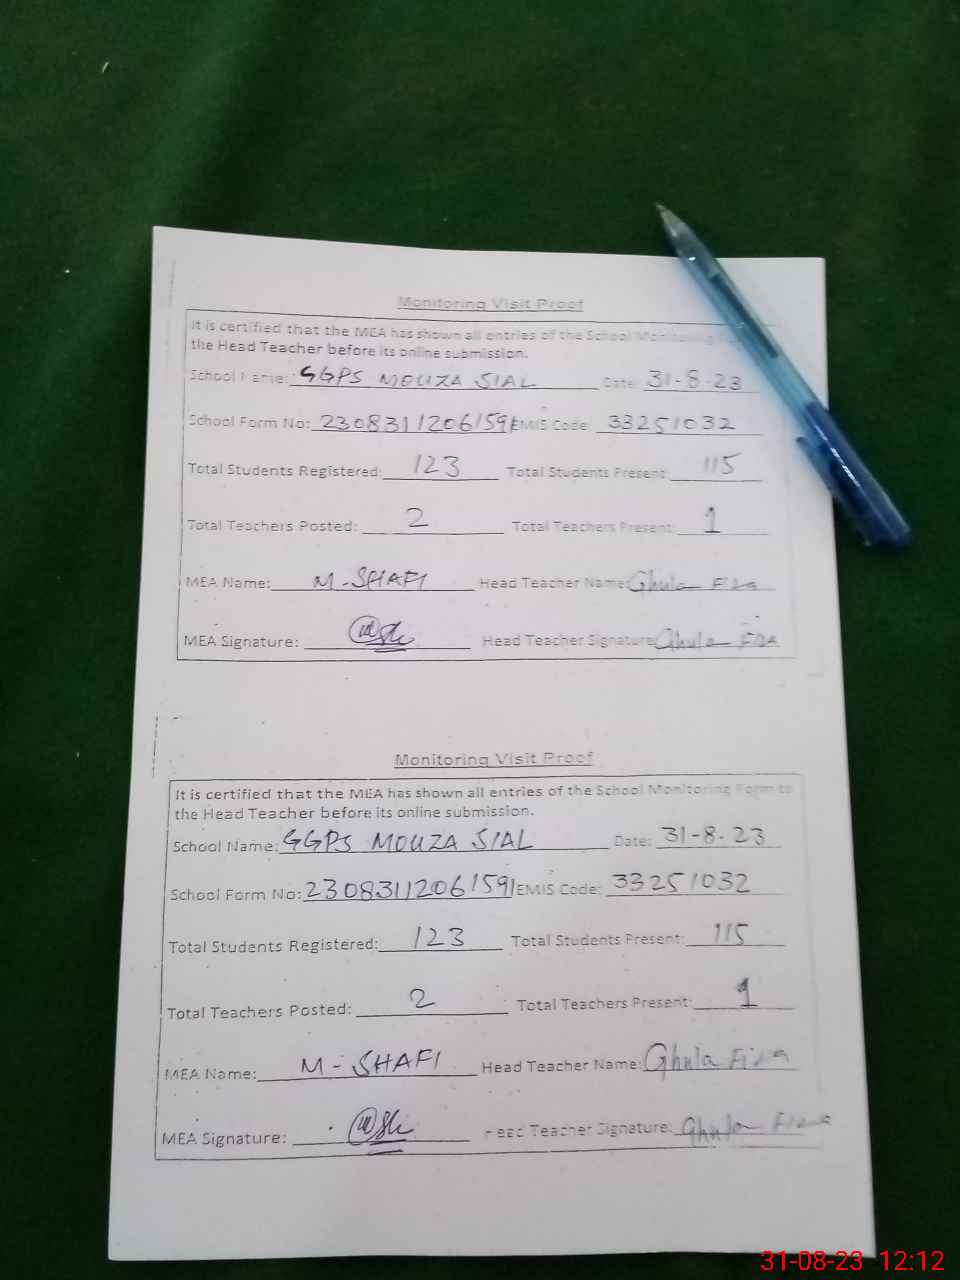 Monitoring Visit Proof
It is certified that the MEA has shown all entries of the School Monitoring
the Head Teacher before its online submission.
School Name: GGPS MOUZA SIAL Date: 31-8-23
School Form No: 2308311206159 EMIS Code: 33251032
Total Students Registered: 123 Total Students Present: 115
Total Teachers Posted: 2 Total Teachers Present: 1
MEA Name: M-SHAFI Head Teacher Name: Ghula Fiza
MEA Signature: Head Teacher Signature: Ghula Fiza
Monitoring Visit Proof
It is certified that the MEA has shown all entries of the School Monitoring Form to
the Head Teacher before its online submission.
School Name: GGPS MOUZA SIAL Date: 31-8-23
School Form No: 23083112061591 EMIS Code: 33251032
Total Students Registered: 123 Total Students Present: 115
Total Teachers Posted: 2 Total Teachers Present: 1
MEA Name: M-SHAFI Head Teacher Name: Ghula Fiza
MEA Signature: Head Teacher Signature: Ghula Fiza
31-08-23 12:12